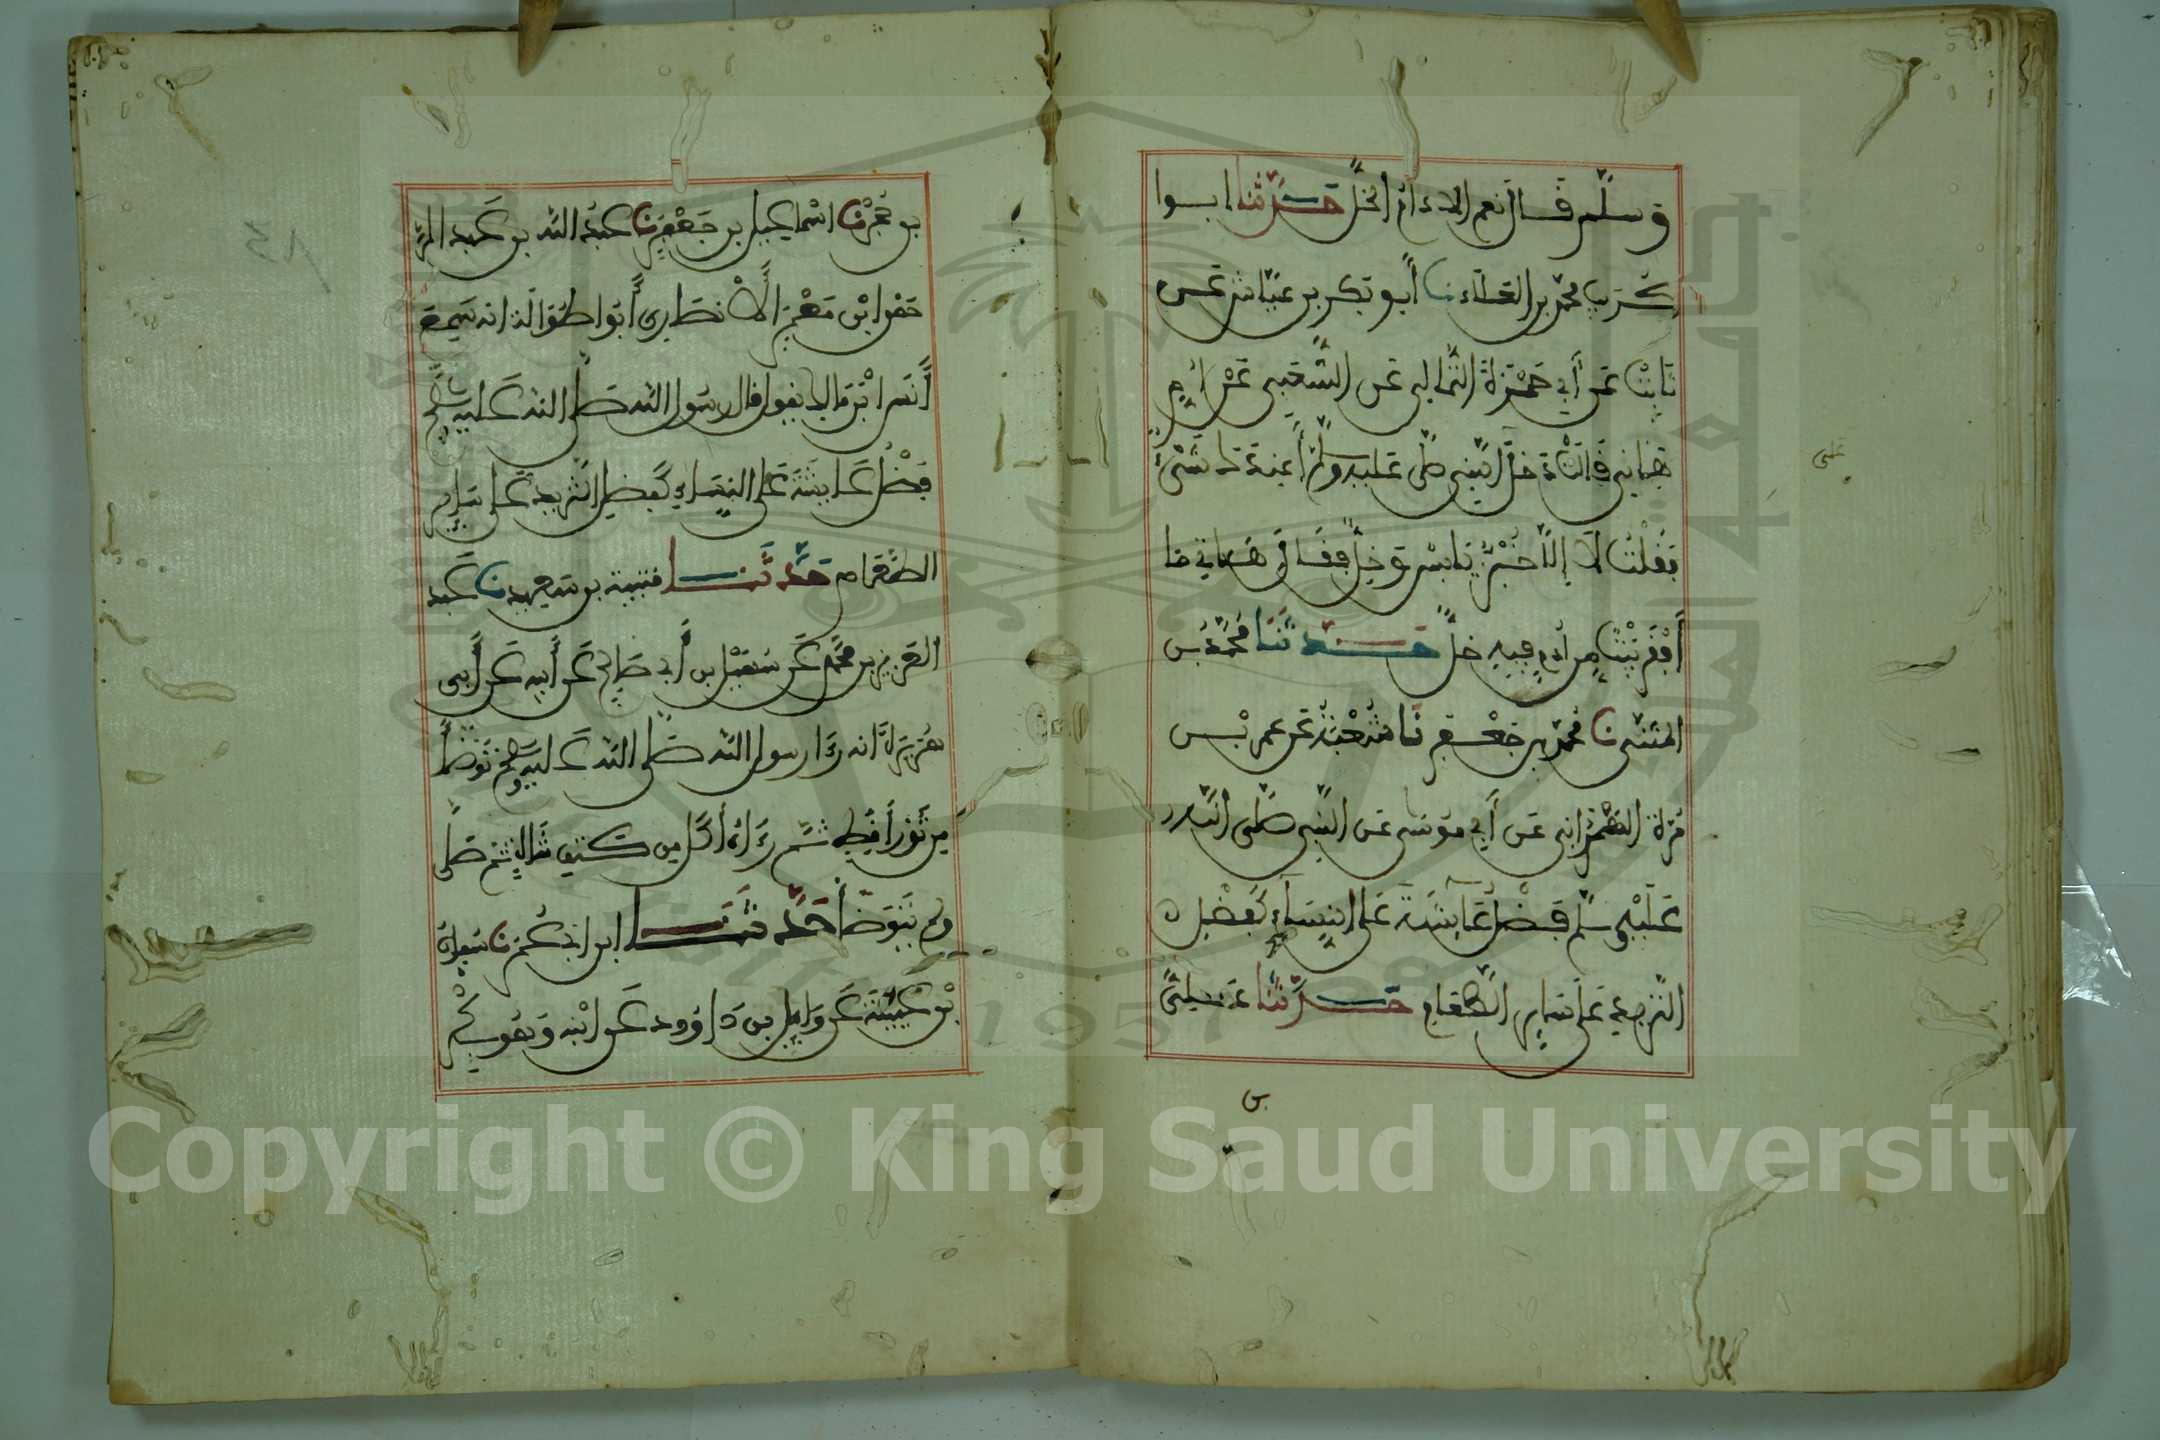 وسلم قال نعم الادام الخل حدثنا ابوا
كريب محمد بن العلاء نا أبو بكر بن عياش عن
ثابت عن أبي حمزة الثمالي عن الشعبي عن أم
هاني قالت دخل النبي صلى عليه وسلم أعندك شيء
فقلت لا إلا خبز يابس وخل فقال هاتي ما
أقفر بيت من أدم فيه خل حدثنا محمد بن
المثنى نا محمد بن جعفر نا شعبة عن عمر بن
مرة الهمذاني عن أبي موسى عن النبي صلى الله
عليه وسلم فضل عائشة على النساء كفضل
الثريد على ساير الطعام حدثنا علي
علي
بن حجر نا اسماعيل بن جعفر نا عبد الله بن عبد الر
حمن ابن معمر الأنصاري أبوا طوالة انه سمع
أنس ابن مالك يقول قال رسول الله صلى الله عليه وسلم
فضل عايشة على النساء كفضل الثريد على ساير
الطعام حدثنا قتيبة بن سعيد نا عبد
العزيز بن محمد عن سهيل بن أبي صالح عن أبيه عن أبي
هريرة انه رءا رسول الله صلى الله عليه وسلم توضأ
من ثور أقط ثم رءاه أكل من كتف شاة ثم صلى
ولم يتوضأ حدثنا ابن ابي عمر نا سفيان
بن عيينة عن وايل بن داوود عن ابنه وهو بكر
Copyright © King Saud University
1957